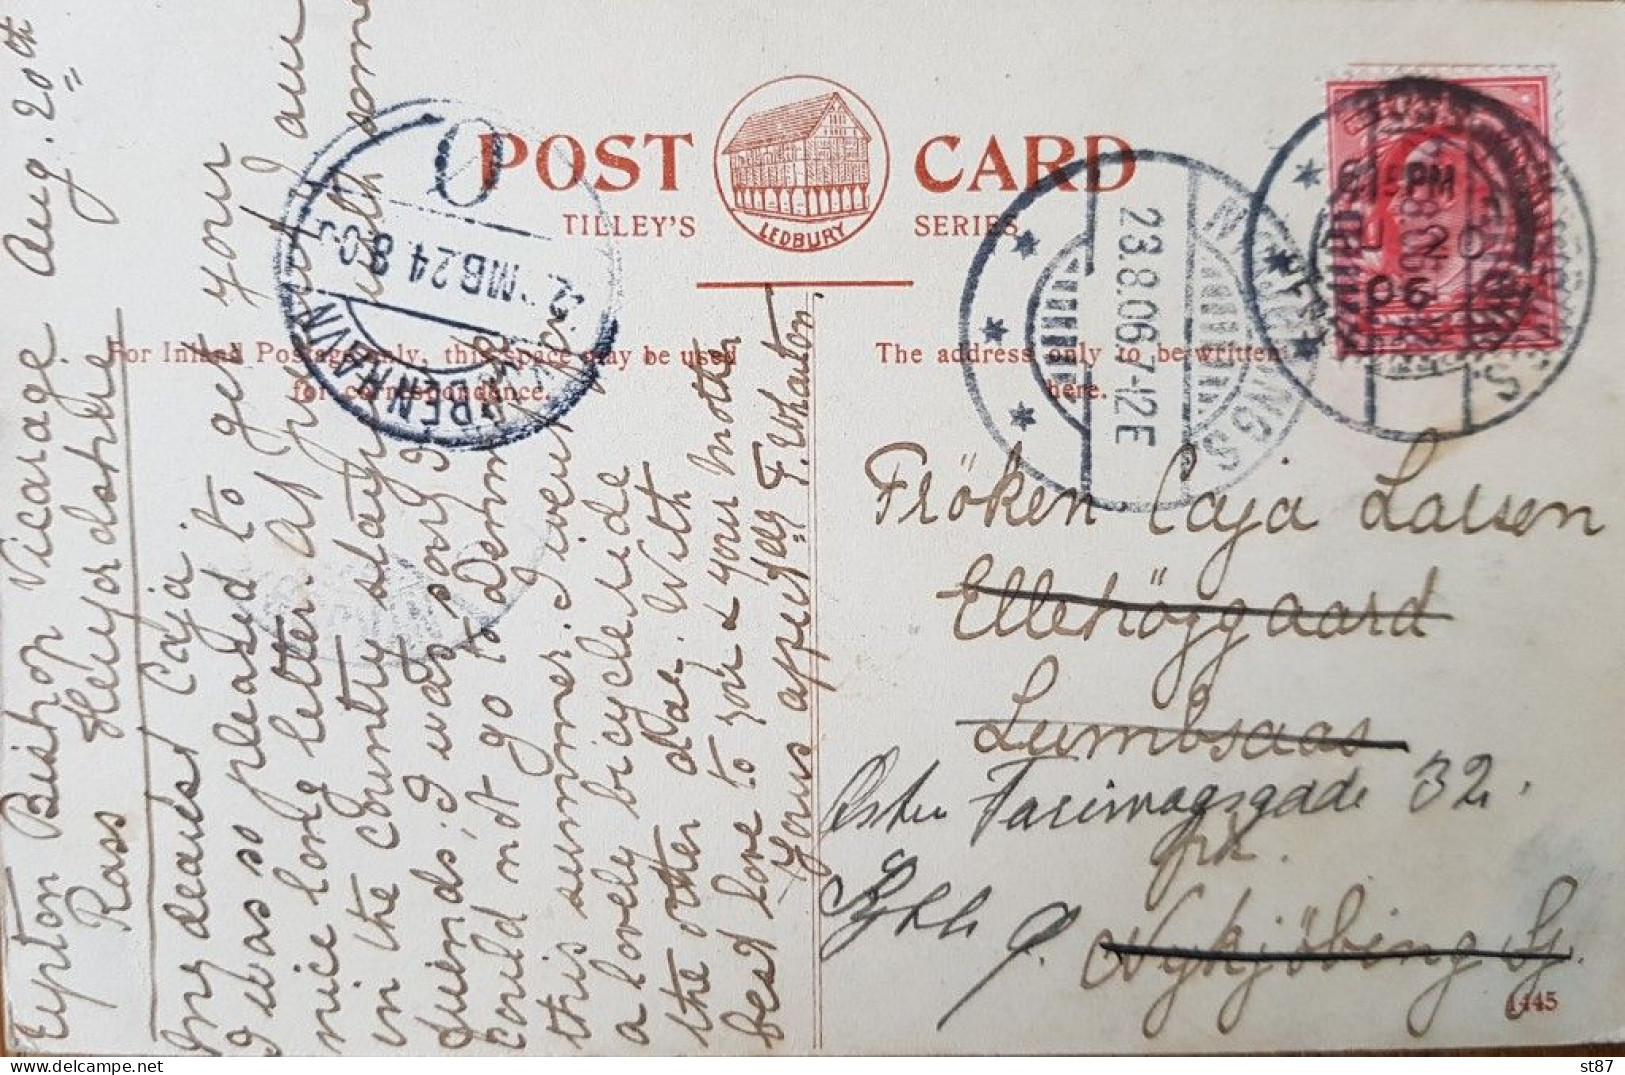 POST CARD
TILLEY'S SERIES
LEDBURY
For Inland Postage only, this space may be used
for correspondence.
The address only to be written
here.
Upton Bishop Vicarage Aug. 20th
Ross Herefordshire
My dearest Caja
I was so pleased to get your
nice long letter. As you are
in the country staying with some
friends; I was sorry I
could not go to Denmark
this summer. I went for
a lovely bicycle ride
the other day. With
best love to you & your mother
Yours affectly F. Wharton
Fröken Caja Larsen
Ellehöjgaard
Lumbsaas
Øster Farimagsgade 32.
Kbh. Ø.
Nykjöbing Sj.
23.8.06.7-12E
24 8.0
PM
06
1445
st87